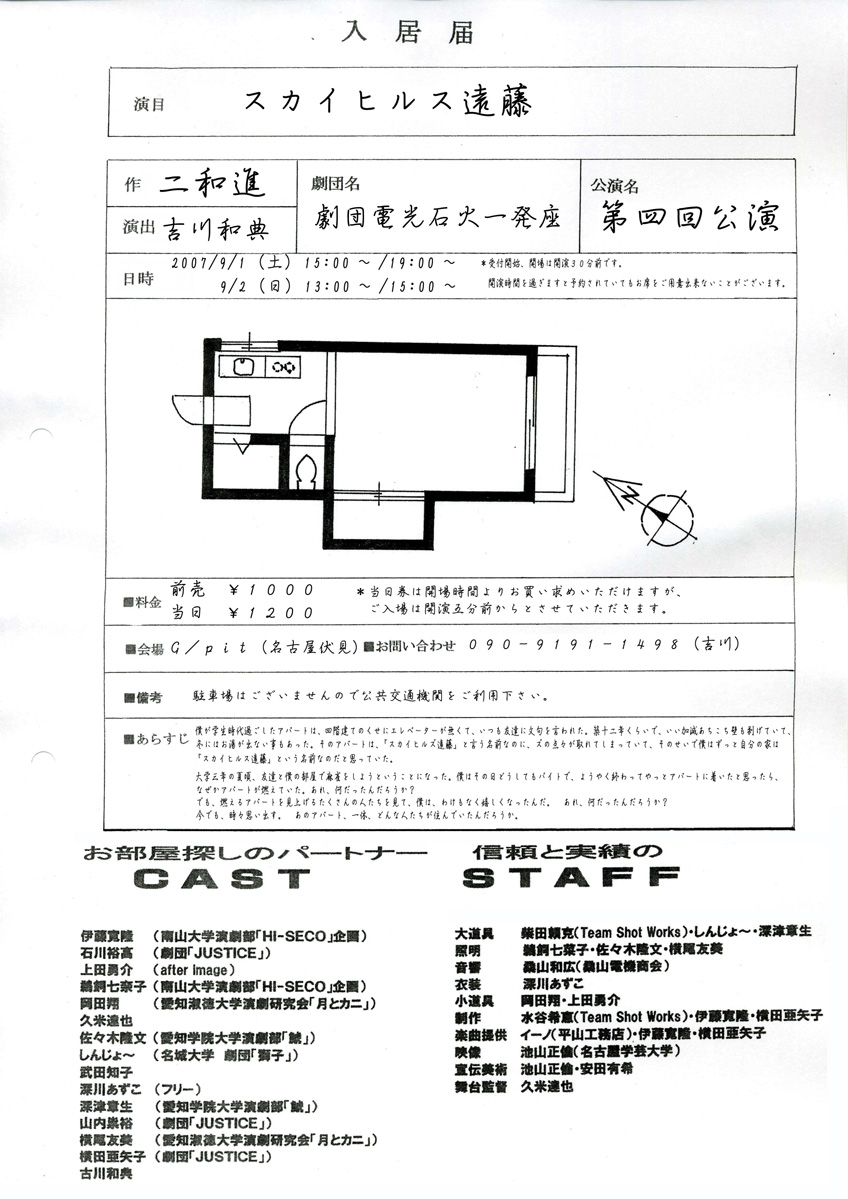 入居届
演目 スカイヒルス遠藤
作 二和進
演出 吉川和典
劇団名
劇団電光石火一発座
公演名
第四回公演
日時
2007/9/1（土）15:00～/19:00～ ＊受付開始、開場は開演30分前です。
9/2（日）13:00～/15:00～ 開演時間を過ぎますと予約されていてもお席をご用意出来ないことがございます。
■料金
前売 ￥1000 ＊当日券は開場時間よりお買い求めいただけますが、
当日 ￥1200 ご入場は開演五分前からとさせていただきます。
■会場 G/pit（名古屋伏見）■お問い合わせ 090-9191-1498（吉川）
■備考 駐車場はございませんので公共交通機関をご利用下さい。
■あらすじ
僕が学生時代過ごしたアパートは、四階建てのくせにエレベーターが無くて、いつも友達に文句を言われた。築十二年くらいで、いい加減あちこち壁も剥げていて、
冬にはお湯が出ない事もあった。そのアパートは、「スカイヒルズ遠藤」と言う名前なのに、ズの点々が取れてしまっていて、そのせいで僕はずっと自分の家は
「スカイヒルス遠藤」という名前なのだと思っていた。
大学三年の夏頃、友達と僕の部屋で麻雀をしようということになった。僕はその日どうしてもバイトで、ようやく終わってやっとアパートに着いたと思ったら、
なぜかアパートが燃えていた。あれ、何だったんだろうか？
でも、燃えるアパートを見上げるたくさんの人たちを見て、僕は、わけもなく嬉しくなったんだ。 あれ、何だったんだろうか？
今でも、時々思い出す。 あのアパート、一体、どんな人たちが住んでいたんだろうか。
お部屋探しのパートナー
CAST
伊藤寛隆 （南山大学演劇部「HI-SECO」企画）
石川裕高 （劇団「JUSTICE」）
上田勇介 （after image）
鵜飼七奈子（南山大学演劇部「HI-SECO」企画）
岡田翔 （愛知淑徳大学演劇研究会「月とカニ」）
久米達也
佐々木隆文（愛知学院大学演劇部「鯱」）
しんじょ～ （名城大学 劇団「獅子」）
武田知子
深川あずこ （フリー）
深津章生 （愛知学院大学演劇部「鯱」）
山内崇裕 （劇団「JUSTICE」）
横尾友美 （愛知淑徳大学演劇研究会「月とカニ」）
横田亜矢子（劇団「JUSTICE」）
古川和典
信頼と実績の
STAFF
大道具 柴田頼克（Team Shot Works）・しんじょ～・深津章生
照明 鵜飼七菜子・佐々木隆文・横尾友美
音響 桑山和広（桑山電機商会）
衣装 深川あずこ
小道具 岡田翔・上田勇介
制作 水谷希恵（Team Shot Works）・伊藤寛隆・横田亜矢子
楽曲提供 イーノ（平山工務店）・伊藤寛隆・横田亜矢子
映像 池山正倫（名古屋学芸大学）
宣伝美術 池山正倫・安田有希
舞台監督 久米達也